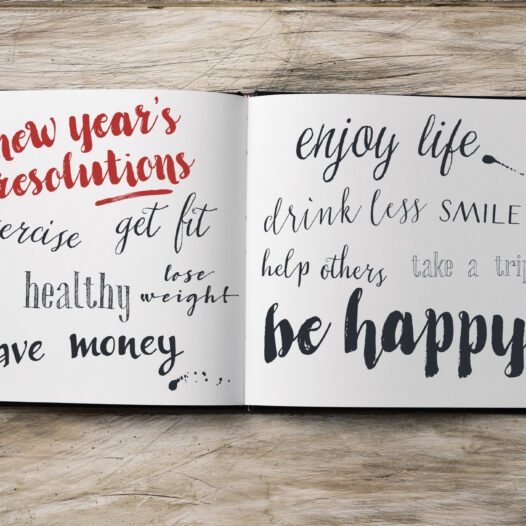 new year's
resolutions
ercise get fit
healthy lose weight
ave money
enjoy life
drink less SMILE
help others take a trip
be happy